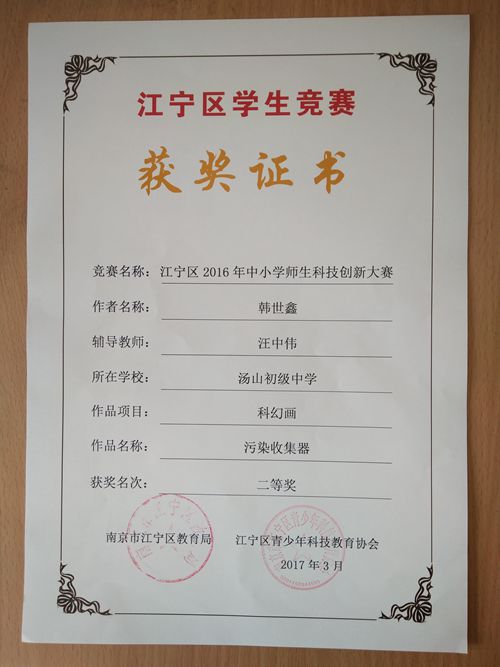 江宁区学生竞赛
获奖证书
竞赛名称：江宁区 2016 年中小学师生科技创新大赛
作者名称：韩世鑫
辅导教师：汪中伟
所在学校：汤山初级中学
作品项目：科幻画
作品名称：污染收集器
获奖名次：二等奖
南京市江宁区教育局
江宁区青少年科技教育协会
2017 年 3 月